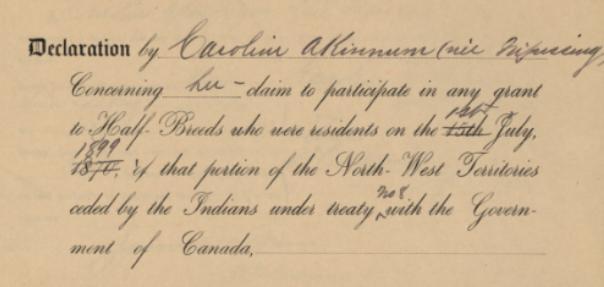 Declaration by Caroline Akinnum (née Nipissing)
Concerning her - claim to participate in any grant
to Half-Breeds who were residents on the 15th 1st July,
1870, 1899 of that portion of the North-West Territories
ceded by the Indians under treaty no 8 with the Govern-
ment of Canada,